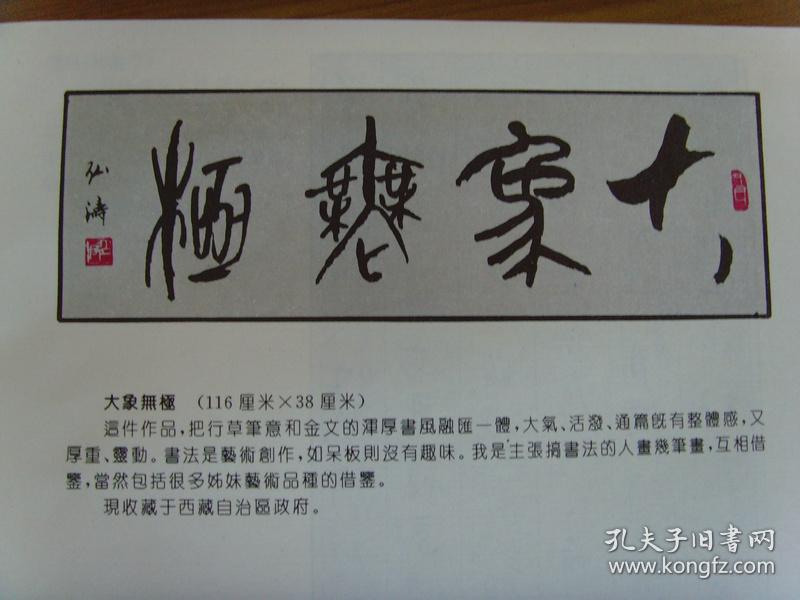 大象無極
弘濤
大象無極 （116 厘米×38 厘米）
這件作品，把行草筆意和金文的渾厚書風融匯一體，大氣、活潑、通篇旣有整體感，又
厚重、靈動。書法是藝術創作，如呆板則沒有趣味。我是主張搞書法的人畫幾筆畫，互相借
鑒，當然包括很多姊妹藝術品種的借鑒。
現收藏于西藏自治區政府。
孔夫子旧书网
www.kongfz.com